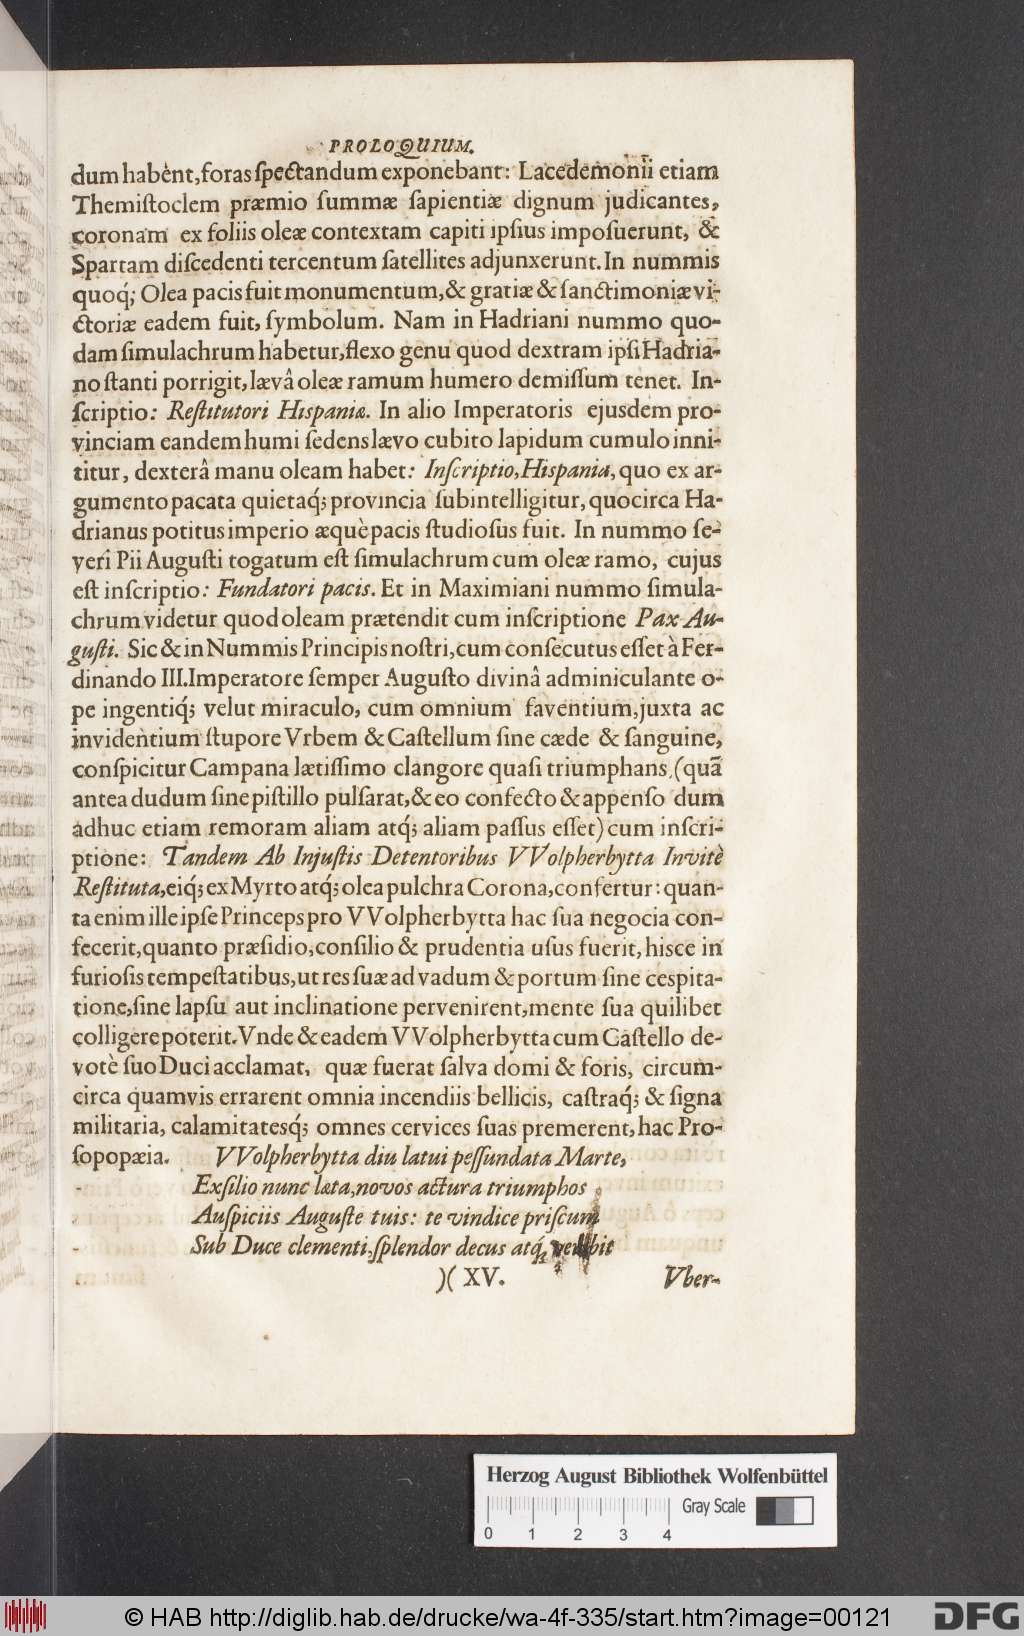 PROLOQUIUM.
dum habent, foras ſpectandum exponebant: Lacedemonii etiam
Themiſtoclem præmio ſummæ ſapientiæ dignum judicantes,
coronam ex foliis oleæ contextam capiti ipſius impoſuerunt, &
Spartam diſcedenti tercentum ſatellites adjunxerunt. In nummis
quoq́; Olea pacis fuit monumentum, & gratiæ & ſanctimoniæ vi-
ctoriæ eadem fuit, ſymbolum. Nam in Hadriani nummo quo-
dam ſimulachrum habetur, flexo genu quod dextram ipſi Hadria-
no ſtanti porrigit, lævâ oleæ ramum humero demiſſum tenet. In-
ſcriptio: Reſtitutori Hiſpaniæ. In alio Imperatoris ejusdem pro-
vinciam eandem humi ſedens lævo cubito lapidum cumulo inni-
titur, dexterâ manu oleam habet: Inſcriptio, Hiſpania, quo ex ar-
gumento pacata quietaq́; provincia ſubintelligitur, quocirca Ha-
drianus potitus imperio æquè pacis ſtudioſus fuit. In nummo ſe-
veri Pii Auguſti togatum eſt ſimulachrum cum oleæ ramo, cujus
eſt inſcriptio: Fundatori pacis. Et in Maximiani nummo ſimula-
chrum videtur quod oleam prætendit cum inſcriptione Pax Au-
guſti. Sic & in Nummis Principis noſtri, cum conſecutus eſſet à Fer-
dinando III. Imperatore ſemper Auguſto divinâ adminiculante o-
pe ingentiq́; velut miraculo, cum omnium faventium, juxta ac
invidentium ſtupore Vrbem & Caſtellum ſine cæde & ſanguine,
conſpicitur Campana lætiſſimo clangore quaſi triumphans, (quã
antea dudum ſine piſtillo pulſarat, & eo confecto & appenſo dum
adhuc etiam remoram aliam atq́; aliam paſſus eſſet) cum inſcri-
ptione: Tandem Ab Injuſtis Detentoribus VVolpherbytta Invitè
Reſtituta, eiq́; ex Myrto atq́; olea pulchra Corona, confertur: quan-
ta enim ille ipſe Princeps pro VVolpherbytta hac ſua negocia con-
fecerit, quanto præſidio, conſilio & prudentia uſus fuerit, hisce in
furioſis tempeſtatibus, ut res ſuæ ad vadum & portum ſine ceſpita-
tione, ſine lapſu aut inclinatione pervenirent, mente ſua quilibet
colligere poterit. Vnde & eadem VVolpherbytta cum Caſtello de-
votè ſuo Duci acclamat, quæ fuerat ſalva domi & foris, circum-
circa quamvis errarent omnia incendiis bellicis, caſtraq́; & ſigna
militaria, calamitatesq́; omnes cervices ſuas premerent, hac Pro-
ſopopæia. VVolpherbytta diu latui peſſundata Marte,
Exſilio nunc læta, novos actura triumphos
Auſpiciis Auguſte tuis: te vindice priſcum
Sub Duce clementi, ſplendor decus atq́;
)( XV. Vber-
Herzog August Bibliothek Wolfenbüttel
Gray Scale
0 1 2 3 4
© HAB http://diglib.hab.de/drucke/wa-4f-335/start.htm?image=00121
DFG